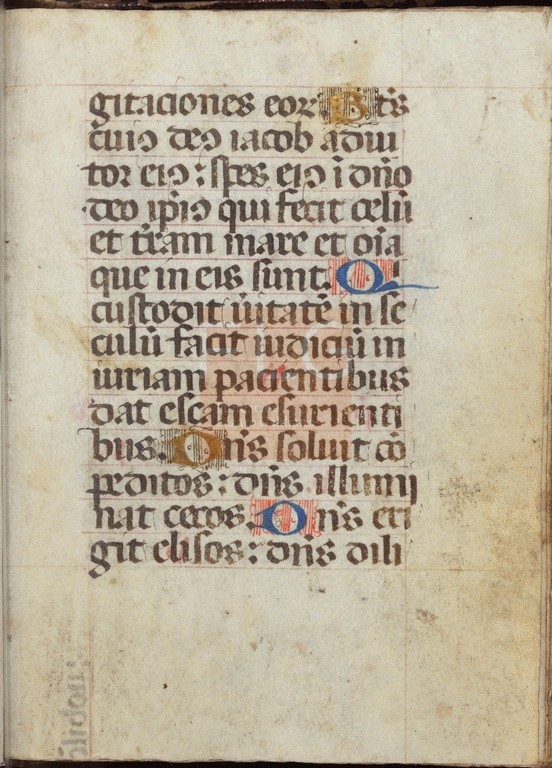 gitaciones eoꝝ Bt̄s
cuiꝰ deꝰ iacob adiu
tor eiꝰ : spes eiꝰ ī dn̄o
deo ip̄iꝰ qui fecit celū
et t̄ram mare et oīa
que in eis sunt. Q
custodit ūitatē in se
culū facit iudiciū in
iuriam pacientibus
dat escam esurienti
bus. Dn̄s soluit cō
peditos : dn̄s illumi
nat cecos. Dn̄s eri
git elisos : dn̄s dili